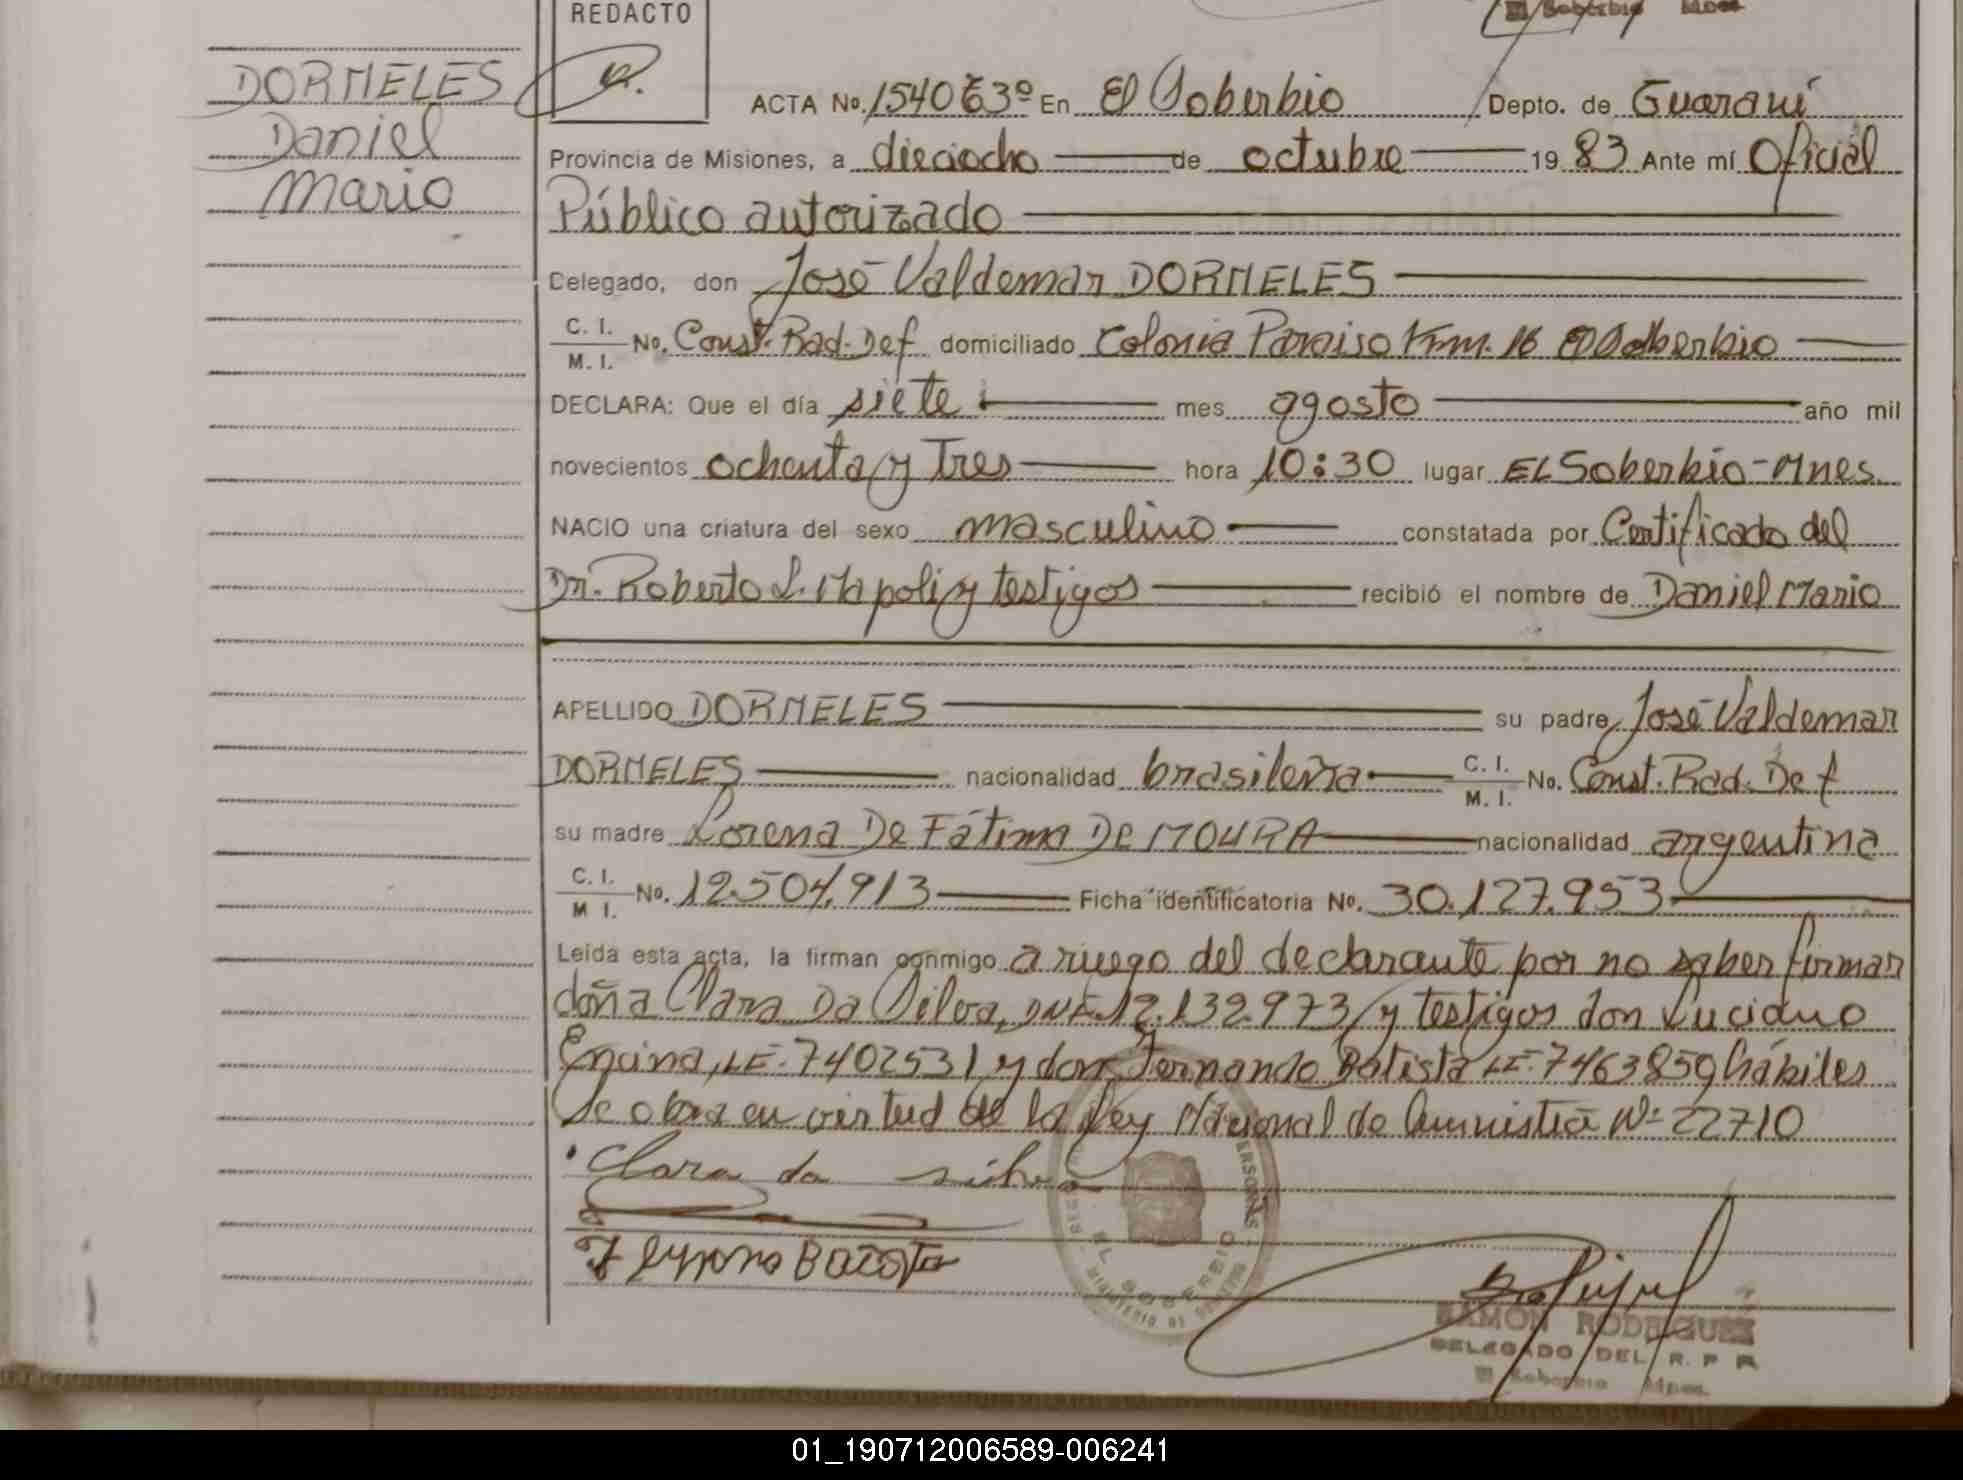 REDACTO
El Soberbio Mnes.
DORNELES
Daniel
Mario
ACTA No. 1540 63º En El Soberbio Depto. de Guaraní
Provincia de Misiones, a dieciocho de octubre 19 83 Ante mí Oficial
Público autorizado
Delegado, don José Valdemar DORNELES
C. I. / M. I. No. Const. Rad. Def domiciliado Colonia Paraiso Km. 16 El Soberbio
DECLARA: Que el día siete mes agosto año mil
novecientos ochenta y Tres hora 10:30 lugar EL Soberbio-Mnes.
NACIO una criatura del sexo masculino constatada por Certificado del
Dr. Roberto L. Napoli y testigos recibió el nombre de Daniel Mario
APELLIDO DORNELES su padre José Valdemar
DORNELES nacionalidad brasileña C. I. / M. I. No. Const. Rad. Def
su madre Lorena De Fátima De MOURA nacionalidad argentina
C. I. / M I. No. 12.504.913 Ficha identificatoria No. 30.127.953
Leída esta acta, la firman conmigo a ruego del declarante por no saber firmar
doña Clara Da Silva, DNI. 12.132.973 y testigos don Luciano
Encina, LE. 7402531 y don Fernando Batista LE. 7463859 hábiles
Se obra en virtud de la Ley Nacional de Amnistía Nº 22710
Clara da silva
EL SOBERBIO
RAMON RODRIGUEZ
DELEGADO DEL R. P. P.
El Soberbio Mnes.
01_190712006589-006241